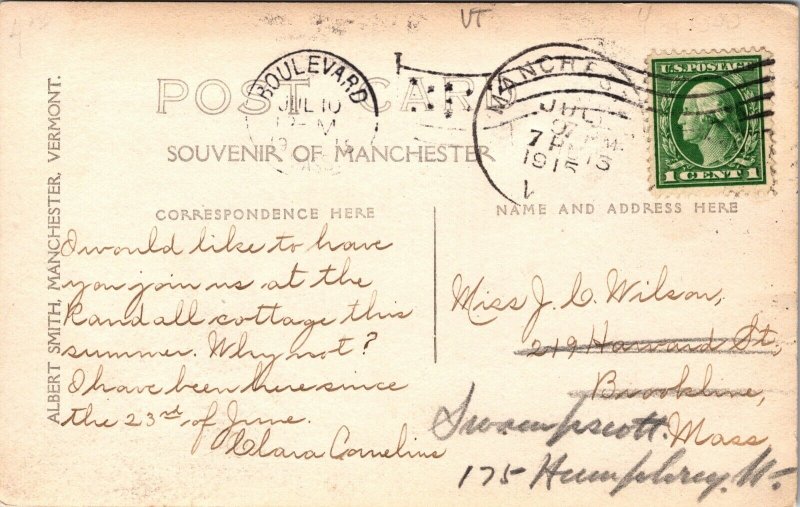 VT
POST CARD
SOUVENIR OF MANCHESTER
BOULEVARD
JUL 10
MANCHES
JUL
1915
U.S. POSTAGE
1 CENT 1
ALBERT SMITH, MANCHESTER, VERMONT.
CORRESPONDENCE HERE
I would like to have
you join us at the
Randall cottage this
summer. Why not?
I have been here since
the 23rd of June.
Clara Cornelius
NAME AND ADDRESS HERE
Miss J. C. Wilson,
219 Harvard St,
Brookline,
Swampscott. Mass
175 Humphrey St.